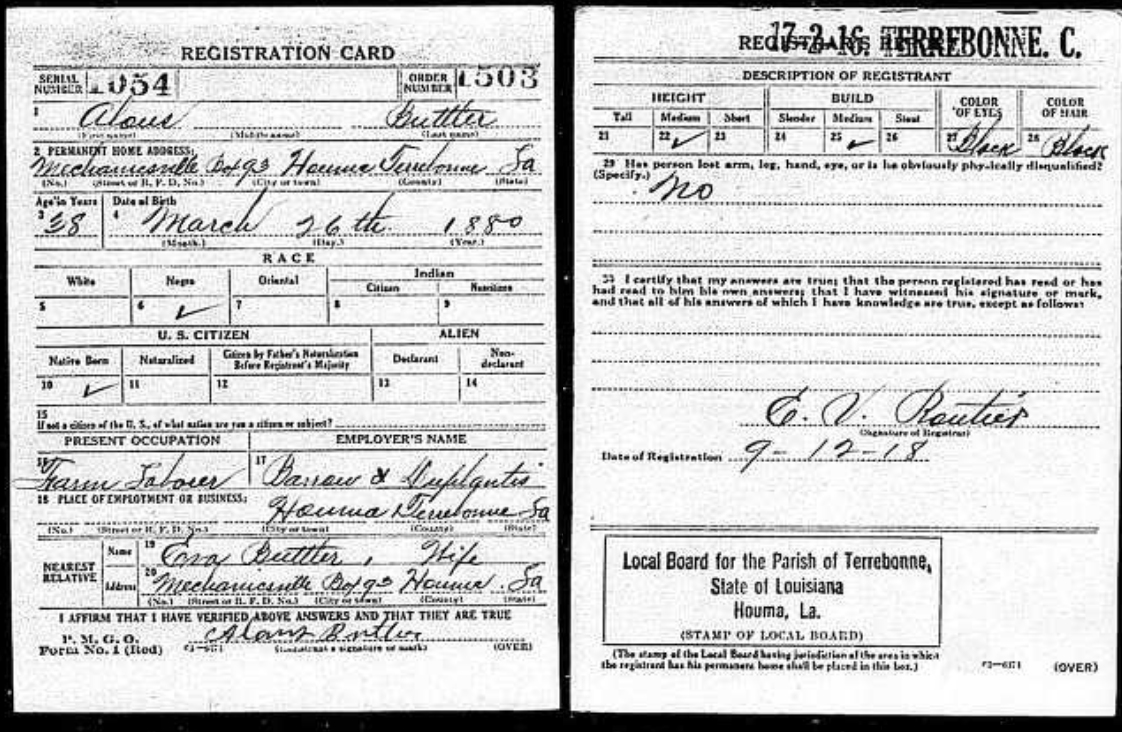 REGISTRATION CARD
SERIAL NUMBER 1054
ORDER NUMBER 1503
1 Alous Buttler
(First name) (Middle name) (Last name)
2 PERMANENT HOME ADDRESS:
Mechanicsville Box 93 Houma Terrebonne La
(No.) (Street or R. F. D. No.) (City or town) (County) (State)
Age in Years Date of Birth
3 38 4 March 26th. 1880
(Month.) (Day.) (Year.)
RACE
White Negro Oriental Indian
Citizen Noncitizen
5 6 ✓ 7 8 9
U. S. CITIZEN ALIEN
Native Born Naturalized Citizen by Father's Naturalization Before Registrant's Majority Declarant Non-declarant
10 ✓ 11 12 13 14
15
If not a citizen of the U. S., of what nation are you a citizen or subject?
PRESENT OCCUPATION EMPLOYER'S NAME
16 Farm Laborer 17 Barrow & Duplantis
18 PLACE OF EMPLOYMENT OR BUSINESS:
Houma Terrebonne La
(No.) (Street or R. F. D. No.) (City or town) (County) (State)
NEAREST RELATIVE
Name 19 Eva Buttler, Wife
Address 20 Mechanicsville Box 93 Houma La
(No.) (Street or R. F. D. No.) (City or town) (County) (State)
I AFFIRM THAT I HAVE VERIFIED ABOVE ANSWERS AND THAT THEY ARE TRUE
P. M. G. O.
Form No. 1 (Red) (Registrant's signature or mark) (OVER)
REGISTRAR'S REPORT 17-2-16. TERREBONNE. C.
DESCRIPTION OF REGISTRANT
HEIGHT BUILD COLOR OF EYES COLOR OF HAIR
Tall Medium Short Slender Medium Stout
21 22 ✓ 23 24 25 ✓ 26 27 Black 28 Black
29 Has person lost arm, leg, hand, eye, or is he obviously physically disqualified?
(Specify.) No
30 I certify that my answers are true; that the person registered has read or has
had read to him his own answers; that I have witnessed his signature or mark,
and that all of his answers of which I have knowledge are true, except as follows:
E. V. Routier
(Signature of Registrar)
Date of Registration 9-12-18
Local Board for the Parish of Terrebonne,
State of Louisiana
Houma, La.
(STAMP OF LOCAL BOARD)
(The stamp of the Local Board having jurisdiction of the area in which
the registrant has his permanent home shall be placed in this box.)
(OVER)